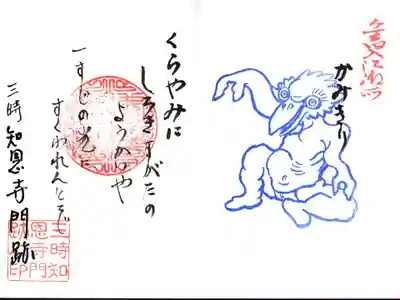 かみきり
くらやみに
しろきすがたの
ようかいや
一すじの光に
すくわれんとぞ
三時知恩寺門跡
三時知
恩寺門
跡印